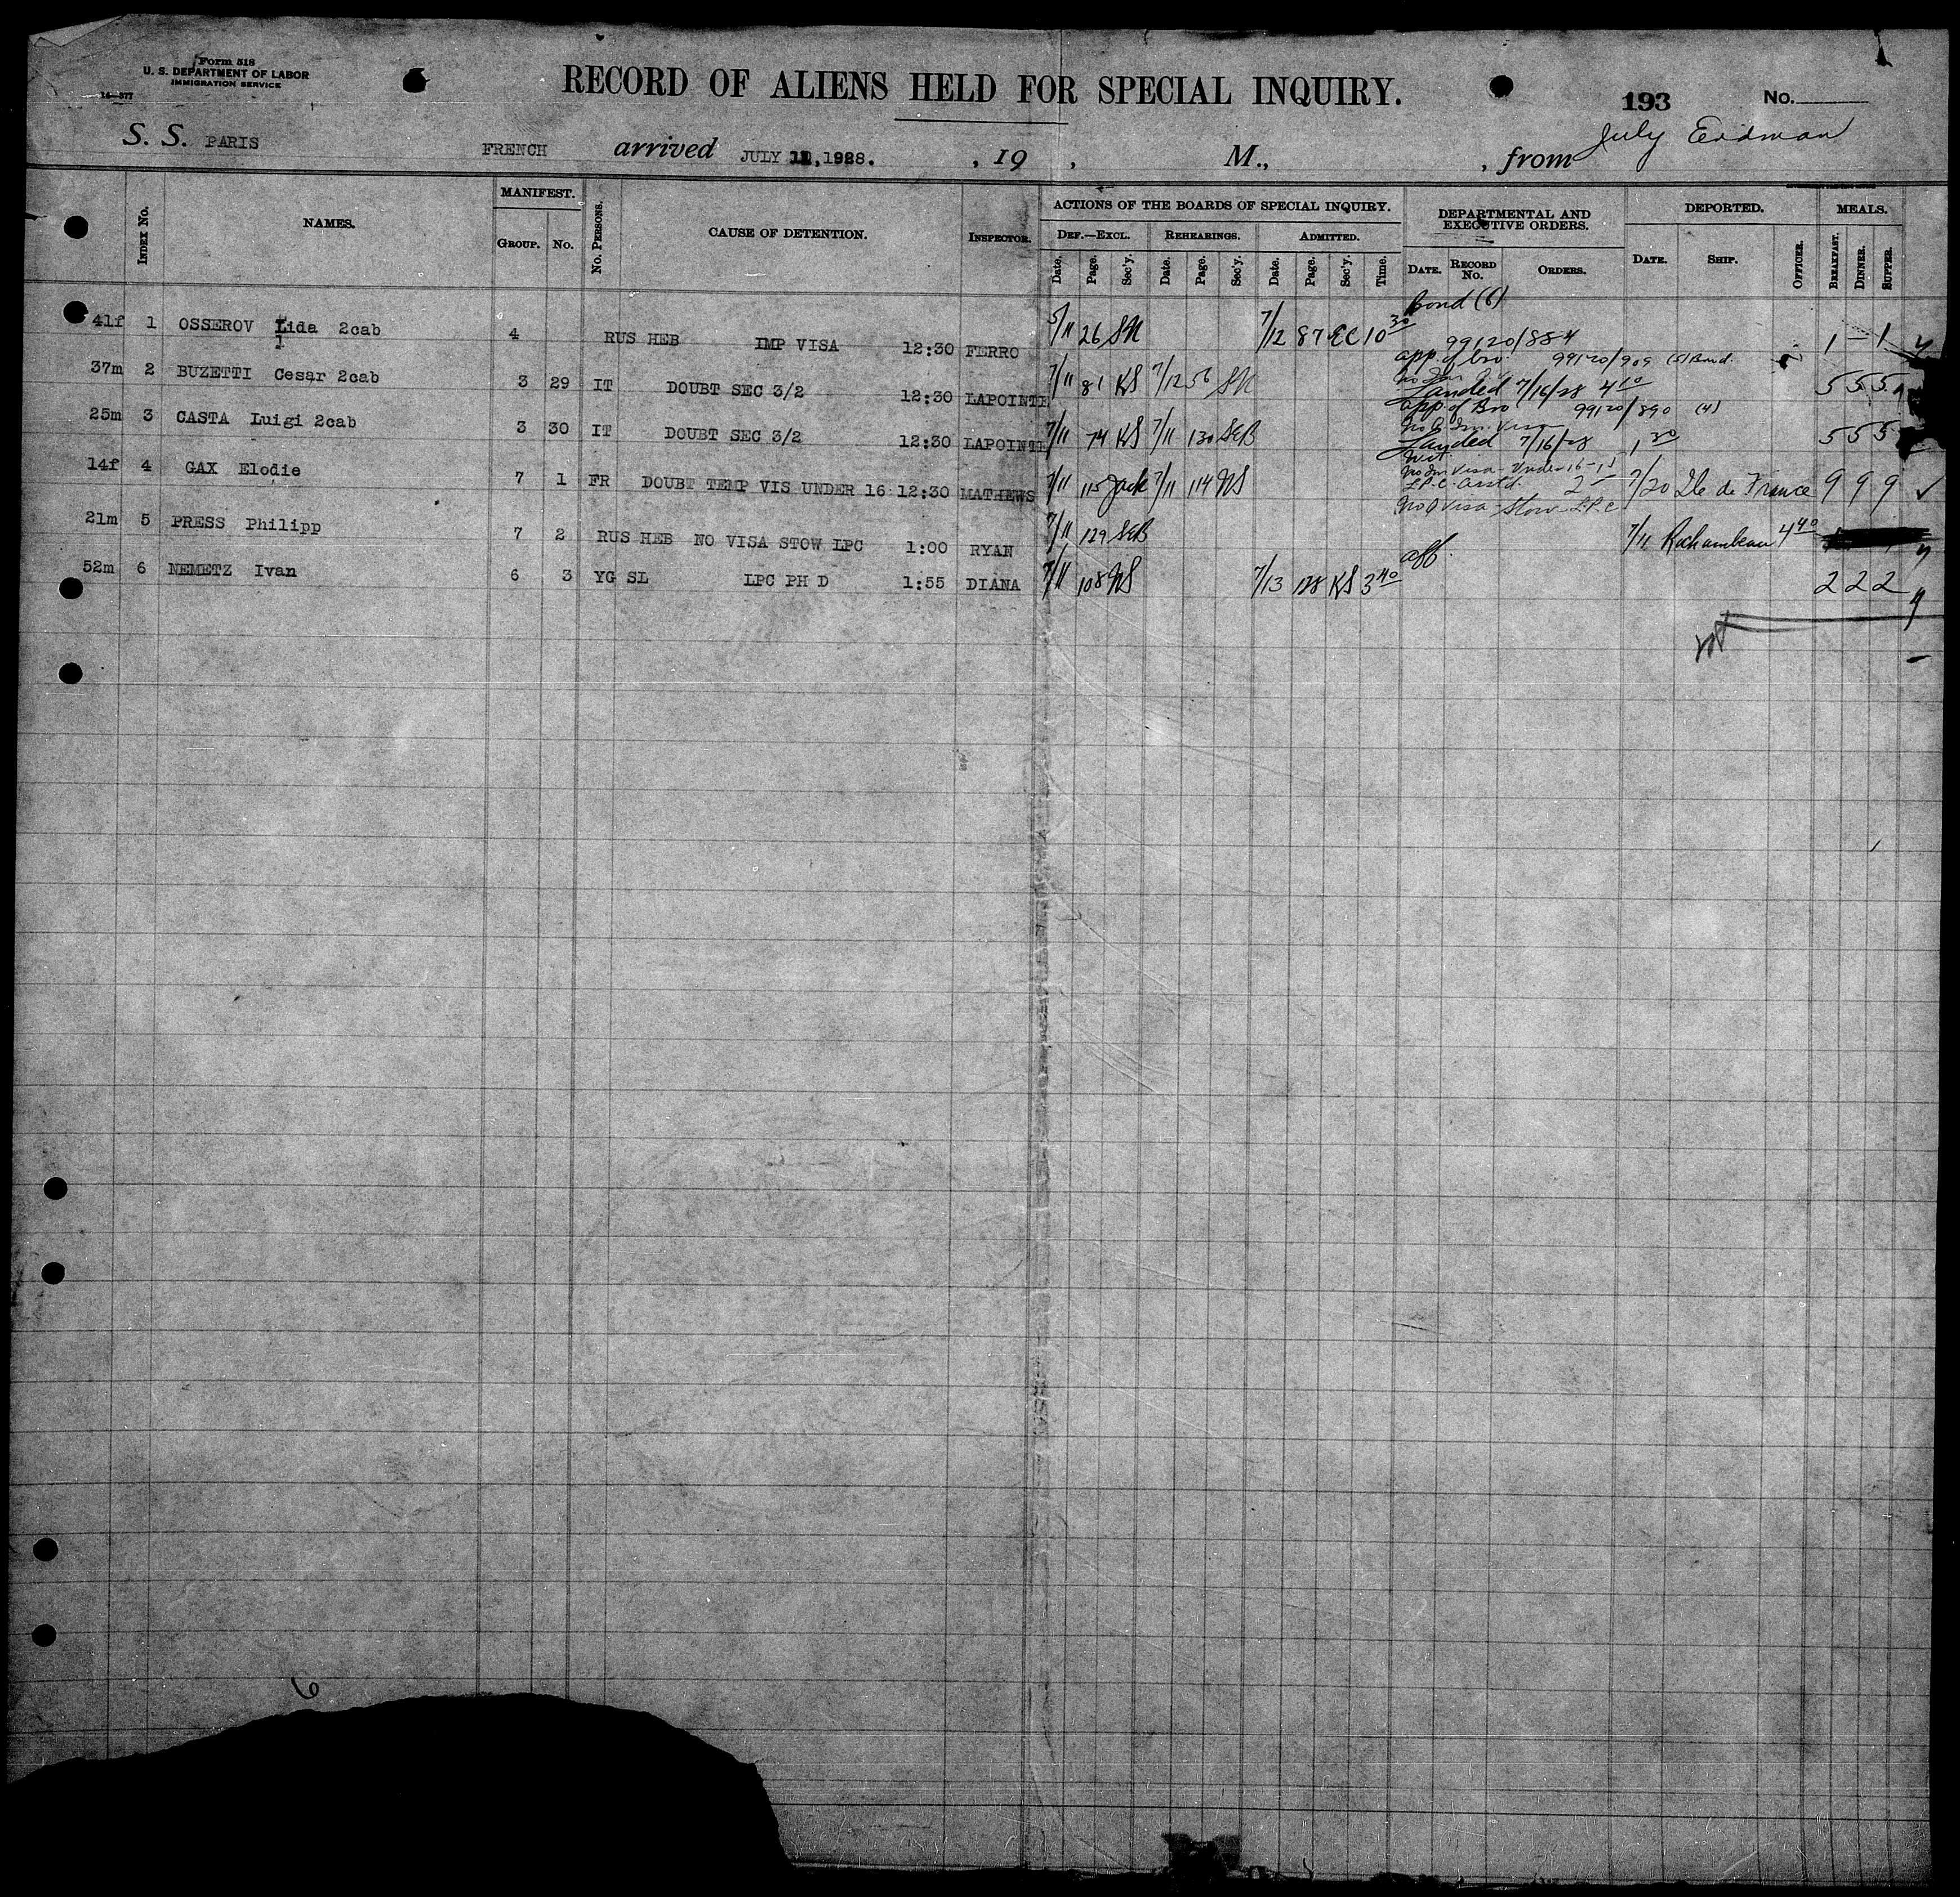 Form 518
U. S. DEPARTMENT OF LABOR
IMMIGRATION SERVICE
14—577
RECORD OF ALIENS HELD FOR SPECIAL INQUIRY.
193 No.
S. S. PARIS FRENCH arrived JULY 11, 1928. , 19 , M., , from July Erdman
INDEX No. NAMES. MANIFEST. GROUP. No. No. PERSONS. CAUSE OF DETENTION. INSPECTOR. ACTIONS OF THE BOARDS OF SPECIAL INQUIRY. DEPARTMENTAL AND EXECUTIVE ORDERS. DEPORTED. MEALS.
DEF.—EXCL. REHEARINGS. ADMITTED.
Date. Page. Sec'y. Date. Page. Sec'y. Date. Page. Sec'y. Time. DATE. RECORD No. ORDERS. DATE. SHIP. OFFICER. BREAKFAST. DINNER. SUPPER.
Bond (6)
41f 1 OSSEROV Lida 2cab 4 RUS HEB IMP VISA 12:30 FERRO 5/11 26 SM 7/12 87 EC 10 30 99120/884 1 – 1
app. of bro. 99120/909 (5) Bond
37m 2 BUZETTI Cesar 2cab 3 29 IT DOUBT SEC 3/2 12:30 LAPOINTE 7/11 81 KS 7/12 56 SM Landed 7/16/28 4 10 5 5 5
app. of Bro 99120/890 (4)
25m 3 CASTA Luigi 2cab 3 30 IT DOUBT SEC 3/2 12:30 LAPOINTE 7/11 74 KS 7/11 130 SEB Landed 7/16/28 1 30 5 5 5
no Im Visa - Under 16 - 15
14f 4 GAX Elodie 7 1 FR DOUBT TEMP VIS UNDER 16 12:30 MATHEWS 7/11 115 Jack 7/11 114 NS L.P.C. 2 7/20 Ile de France 9 9 9 ✓
no Visa - Stow L.P.C
21m 5 PRESS Philipp 7 2 RUS HEB NO VISA STOW LPC 1:00 RYAN 7/11 129 SEB 7/11 Rochambeau 4 40
52m 6 NEMETZ Ivan 6 3 YG SL LPC PH D 1:55 DIANA 7/11 108 NS 7/13 128 KS 3 40 aff. 2 2 2
6